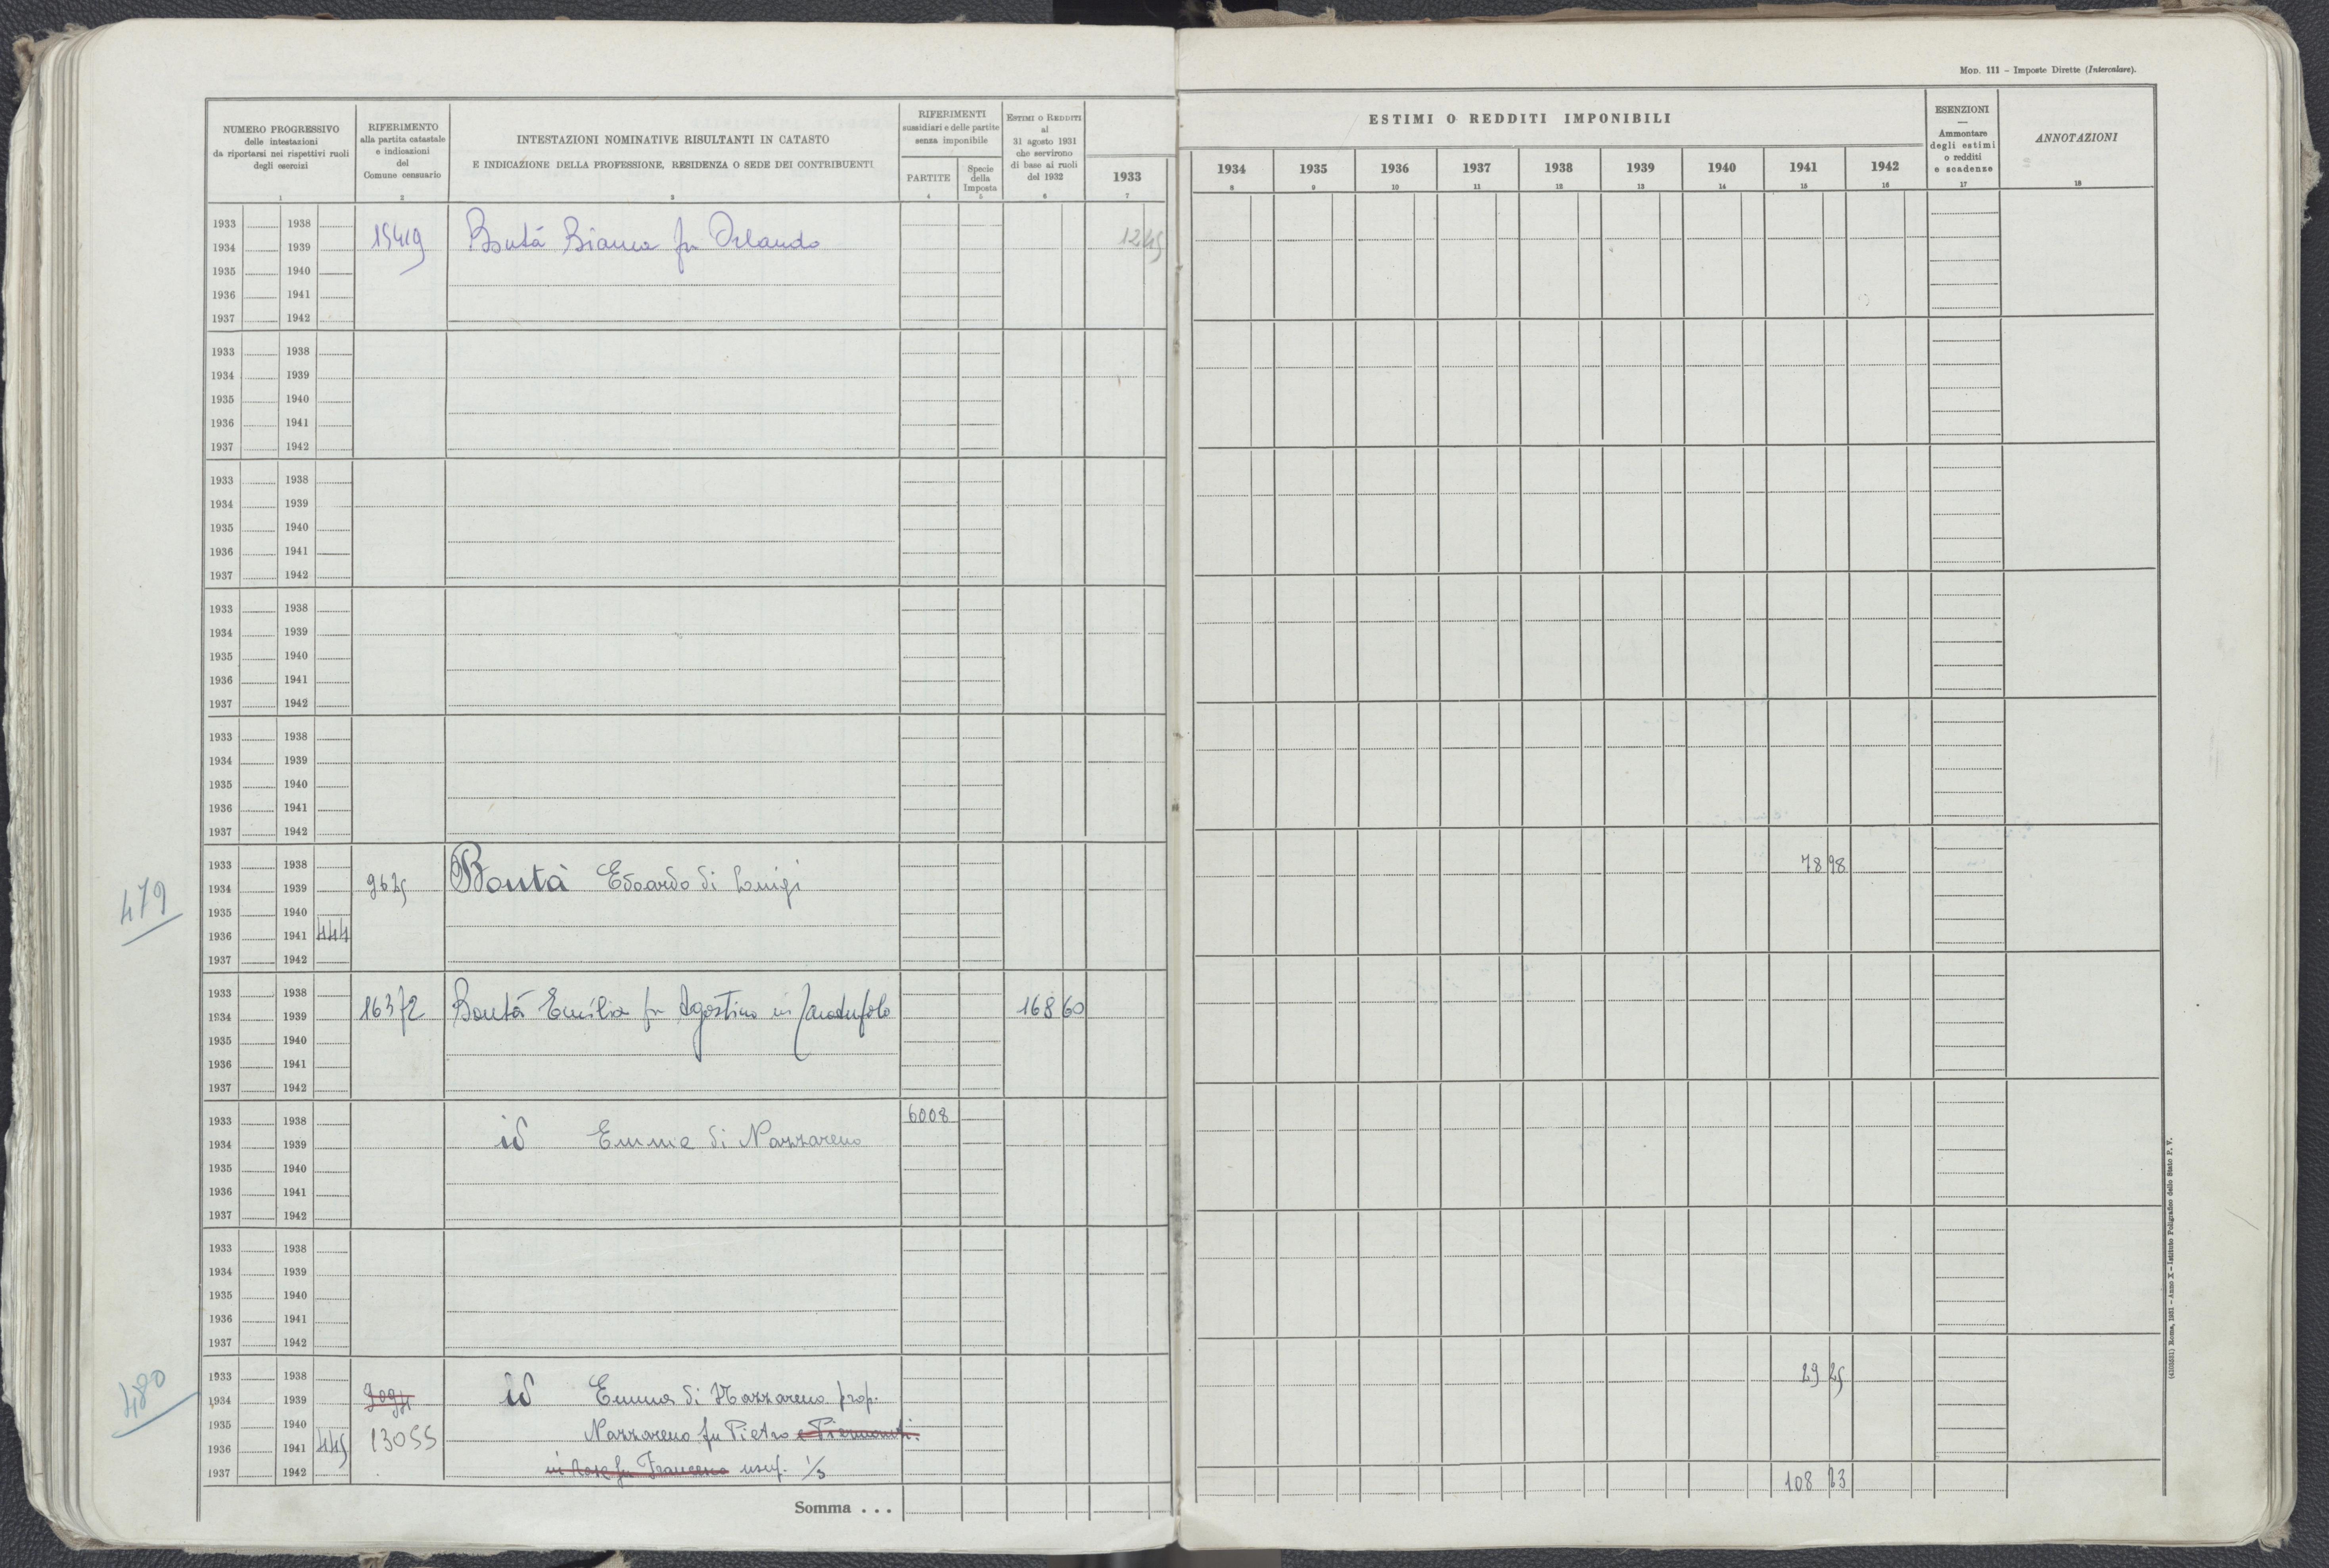 MOD. 111 – Imposte Dirette (Intercalare).
NUMERO PROGRESSIVO
delle intestazioni
da riportarsi nei rispettivi ruoli
degli esercizi
1
RIFERIMENTO
alla partita catastale
e indicazioni
del
Comune censuario
2
INTESTAZIONI NOMINATIVE RISULTANTI IN CATASTO
E INDICAZIONE DELLA PROFESSIONE, RESIDENZA O SEDE DEI CONTRIBUENTI
3
RIFERIMENTI
sussidiari e delle partite
senza imponibile
PARTITE
4
Specie
della
Imposta
5
ESTIMI O REDDITI
al
31 agosto 1931
che servirono
di base ai ruoli
del 1932
6
ESTIMI O REDDITI IMPONIBILI
1933 1934 1935 1936 1937 1938 1939 1940 1941 1942
7 8 9 10 11 12 13 14 15 16
ESENZIONI
—
Ammontare
degli estimi
o redditi
e scadenze
17
ANNOTAZIONI
18
1933 1938
1934 1939 15419 Bontá Bianca fu Orlando 12 45
1935 1940
1936 1941
1937 1942
1933 1938
1934 1939
1935 1940
1936 1941
1937 1942
1933 1938
1934 1939
1935 1940
1936 1941
1937 1942
1933 1938
1934 1939
1935 1940
1936 1941
1937 1942
1933 1938
1934 1939
1935 1940
1936 1941
1937 1942
1933 1938 78 98
479 1934 1939 9625 Bontà Edoardo di Luigi
1935 1940
1936 1941 444
1937 1942
1933 1938
1934 1939 16372 Bontá Emilia fu Agostino in 168 60
1935 1940
1936 1941
1937 1942
1933 1938 6008
1934 1939 id Emma di Nazzareno
1935 1940
1936 1941
1937 1942
1933 1938
1934 1939
1935 1940
1936 1941
1937 1942
1933 1938 29 25
480 1934 1939 id Emma di Nazzareno prop.
1935 1940 Nazzareno fu Pietro e
1936 1941 445 13055
1937 1942 in fu Francesco usuf. 1/3
Somma . . . 108 23
(4103531) Roma, 1931 – Anno X – Istituto Poligrafico dello Stato P. V.